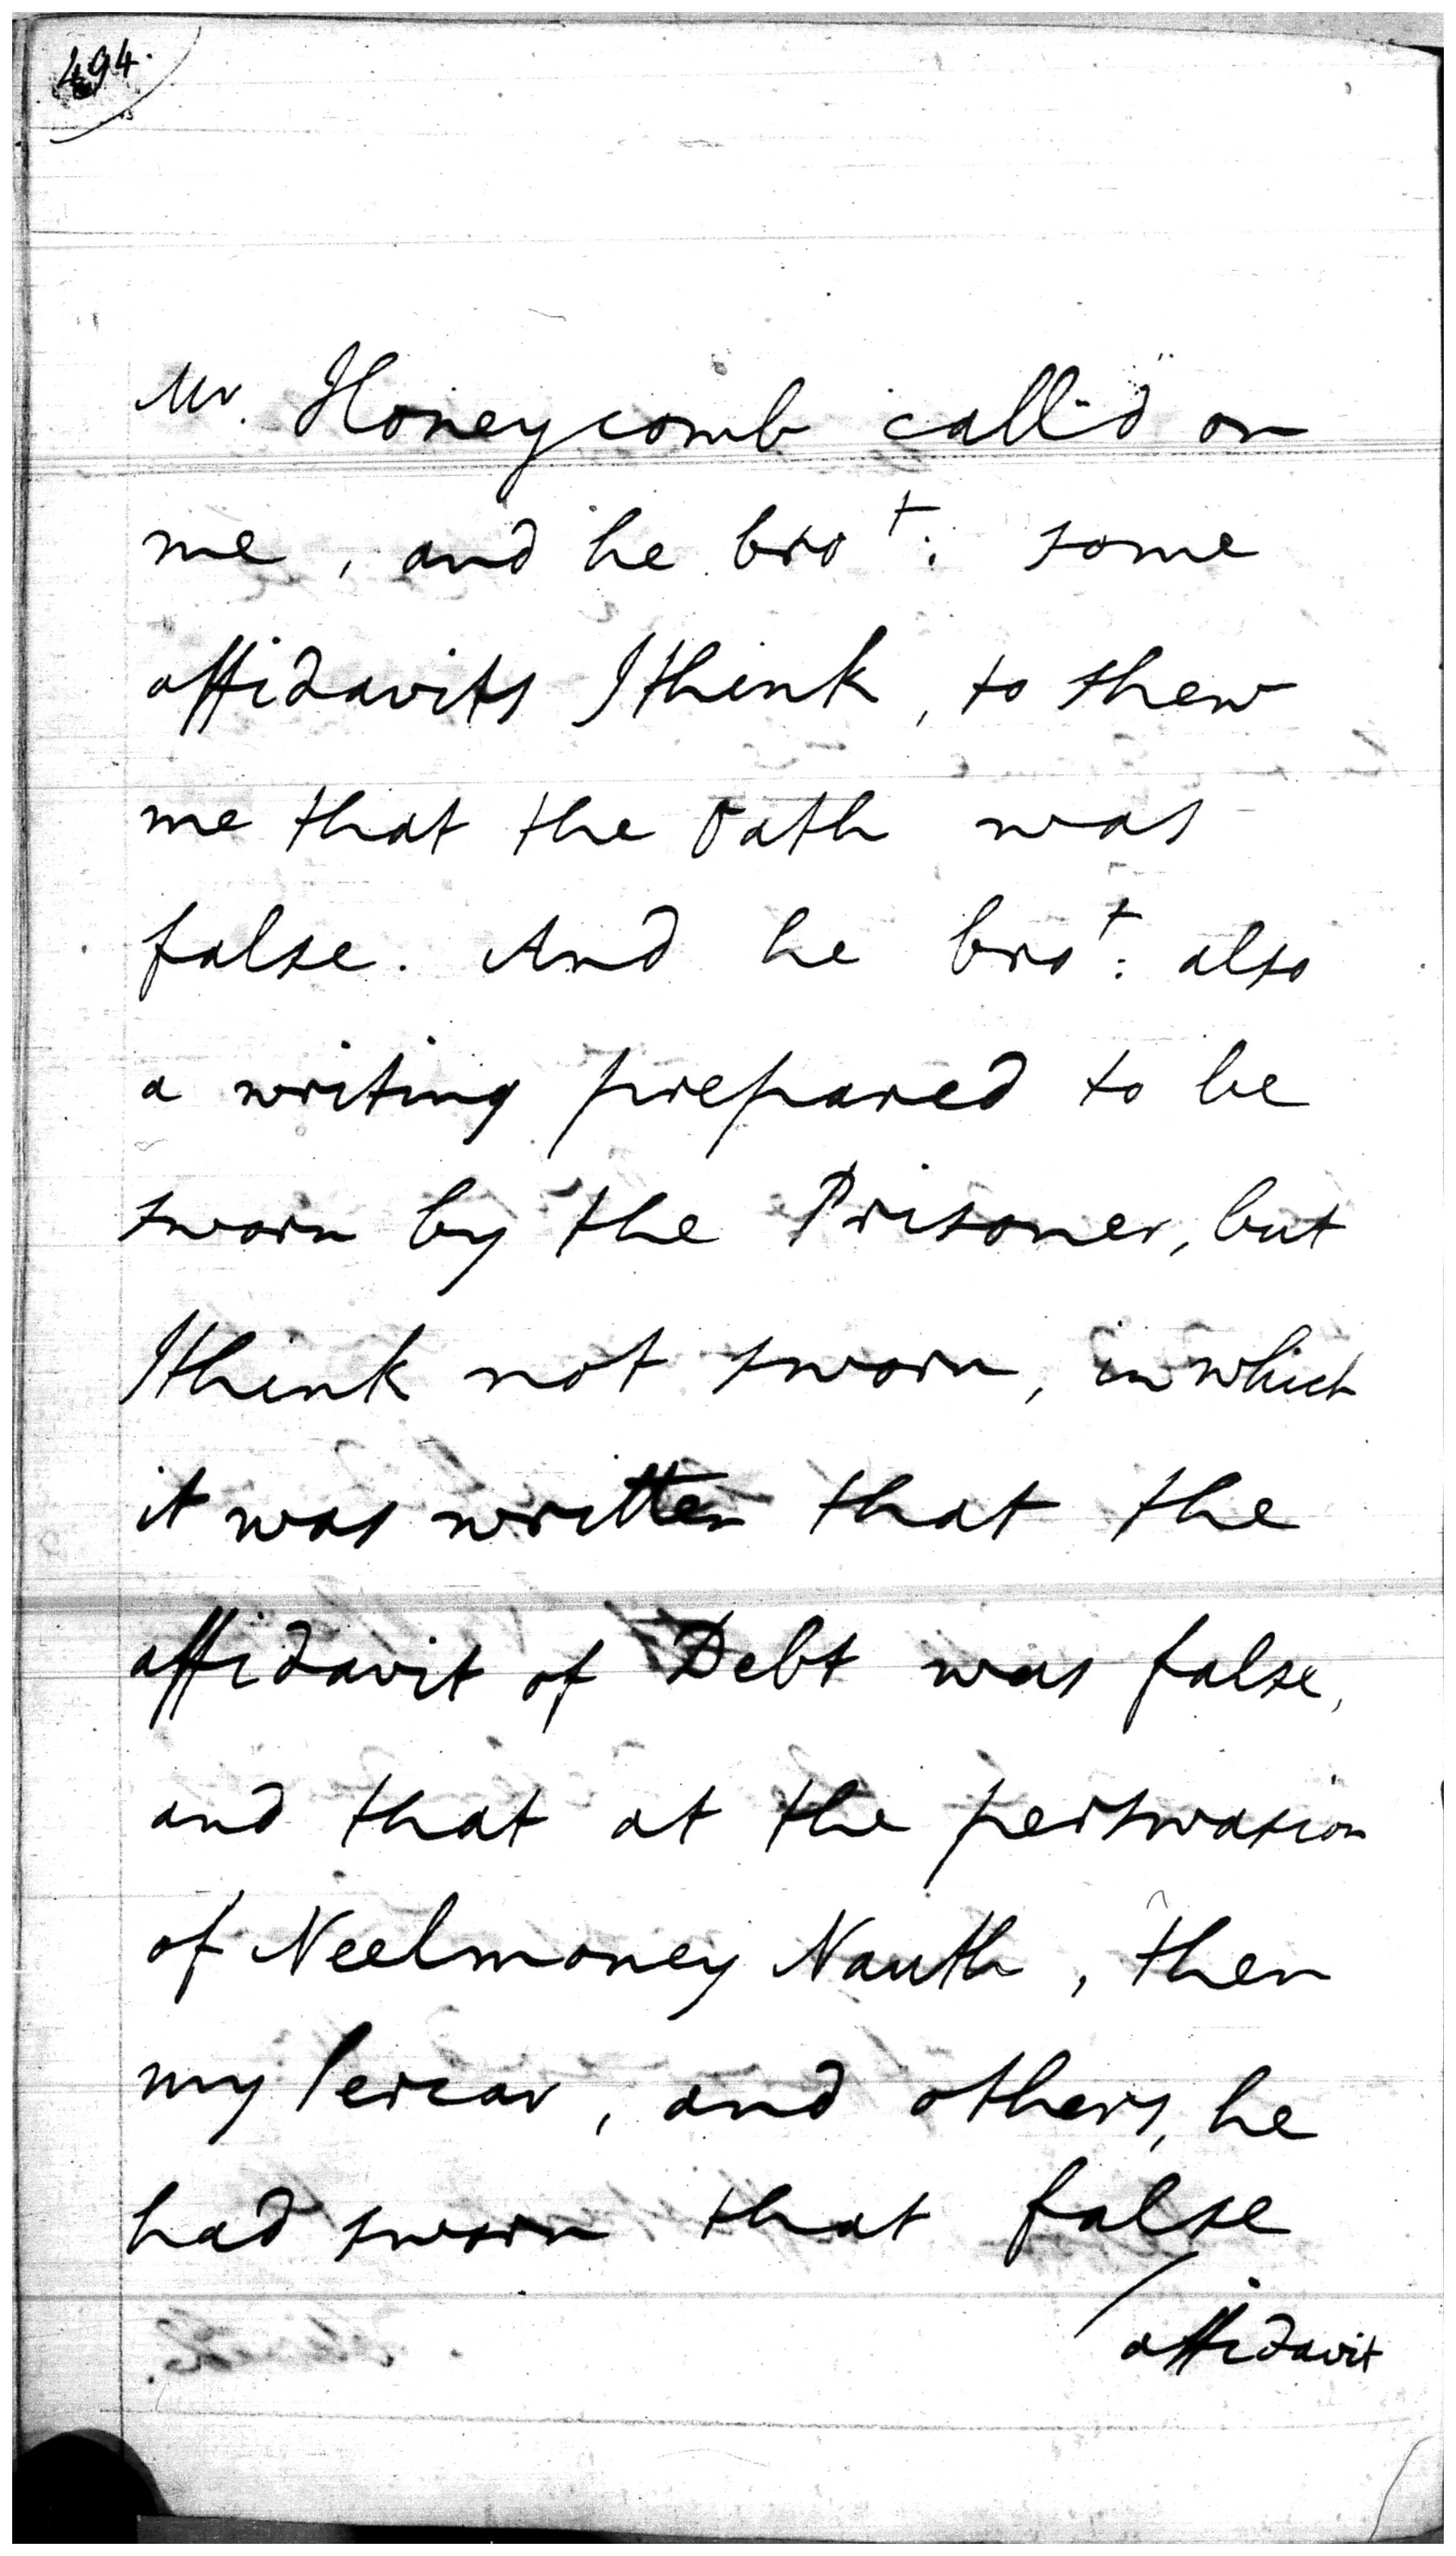 494.
Mr. Honeycomb call'd on
me, and he bro^t: some
affidavits I think, to shew
me that the Oath was
false. And he bro^t: also
a writing prepared to be
sworn by the Prisoner, but
I think not sworn, in which
it was written that the
affidavit of Debt was false,
and that at the perswasion
of Neelmoney Nauth, then
my Sercar, and others, he
had sworn that false
affidavit